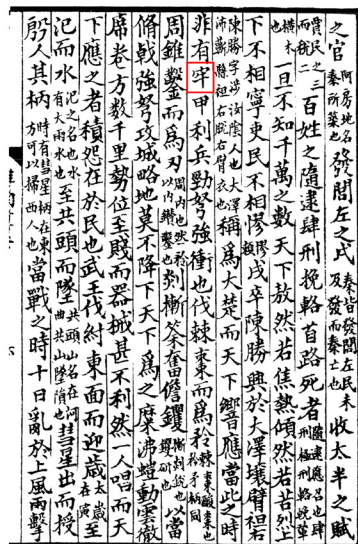 之官阿房地名秦所築也發閭左之戍秦皆發閭左民未及發而秦亡也收太半之賦
民之三而稅二百姓之隨逮肆刑挽輅首路死者隨逮應召也肆刑極刑輅挽輦
橫木也一旦不知千萬之數天下敖然若焦熱傾然若苦烈上
下不相寧吏民不相憀憀賴戍卒陳勝興於大澤攘臂袒右
陳勝字涉汝陰人也大澤沛蘄縣袒右脫右臂衣也稱爲大楚而天下響應當此之時
非有牢甲利兵勁弩強衝也伐棘棗而爲矜棘棗酸棗也矜矛柄
周錐鑿而爲刃周內也然矜以內鑽鑿也剡摲筞奮儋钁摲剡銳也钁斫也以當
脩戟強弩攻城略地莫不降下天下爲之麋沸螘動雲徹
席卷方數千里勢位至賤而器械甚不利然一人唱而天
下應之者積怨在於民也武王伐紂東面而迎歲太歲在寅至
汜而水汜地名也水有大雨水也至共頭而墜共頭山名在河曲共山墜隕也彗星出而授
殷人其柄時有彗星柄在東方可以掃西人也當戰之時十日亂於上風雨擊